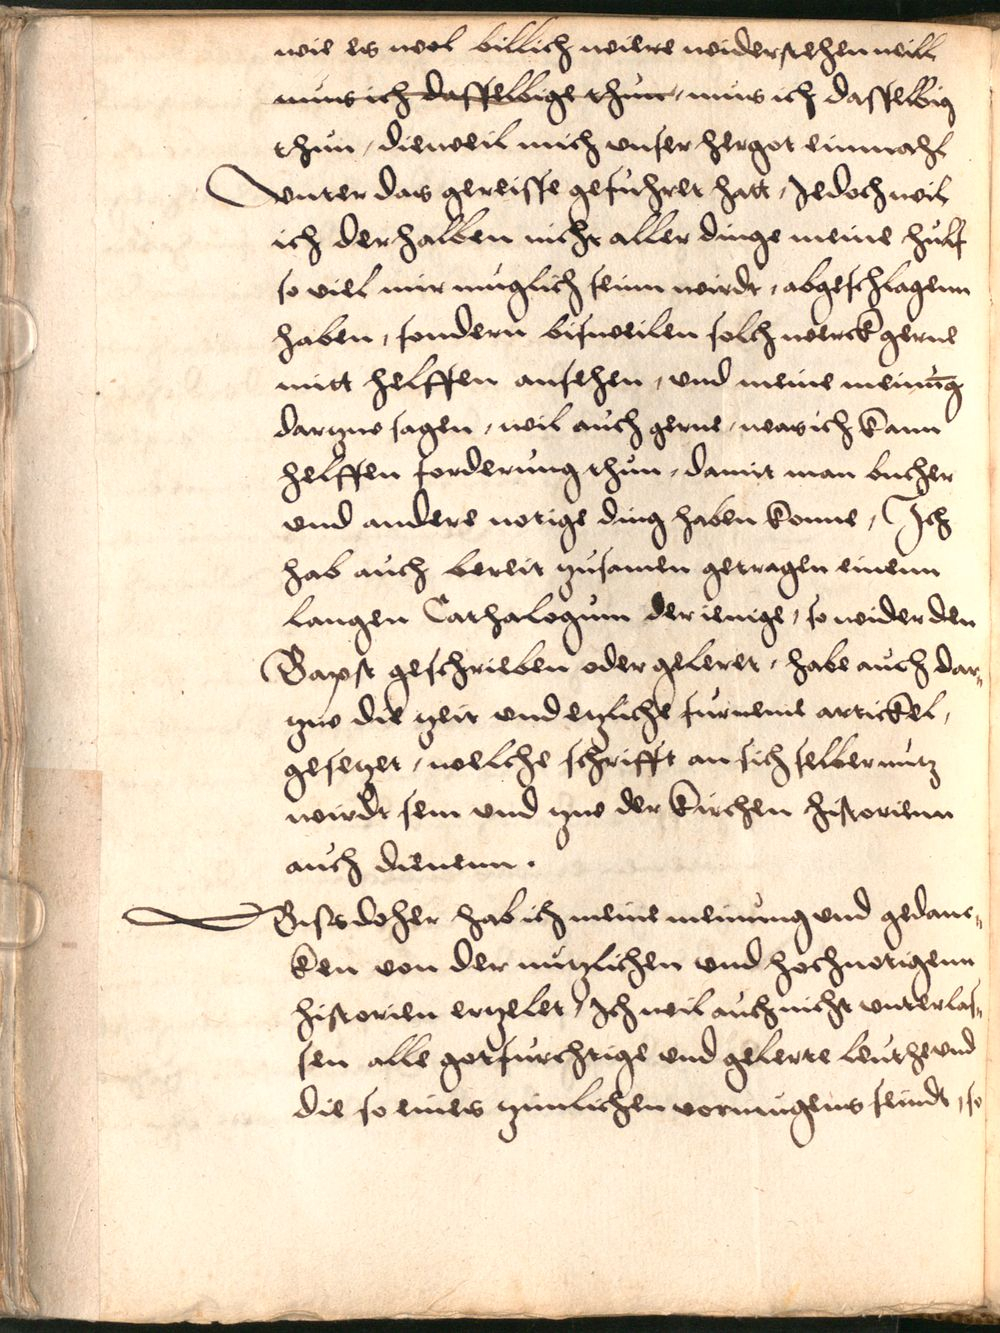 wie es wol billich were widerstehen will
mus ich dasselbige thun, mus ich dasselbig
thun, dieweil mich unser hergot einmahl
Unter das gereisse gefuhret hatt, Jedoch wil
ich derhalben nicht aller dinge meine hulf
so viel mir muglich seinn wirdt, abgeschlagenn
haben, sondern bisweilen solch werck gerne
mitt helffen ansehen, und meine meinung
darzw sagen, wil auch gerne, was ich kann
helffen forderung thun, damit man bucher
und andere notige ding haben konne, Ich
hab auch bereit zusamen getragen einenn
langen Cathalogum derienige, so wider den
Bapst geschrieben oder geleret, habe auch dar„
zw die zeit und etzliche furneme artickel,
gesetzet, welche schrifft an sich selber nutz
wirdt sein und zw der kirchen historienn
auch dienenn.
Bisdoher hab ich meine meinung und gedanc„
ken von der nutzlichen und hochnotigenn
historien erzelet, Ich wil auch nicht unterlas„
sen alle gotfurchtige und gelerte leuthe und
die so eines zimlichen vormugens seindt, so